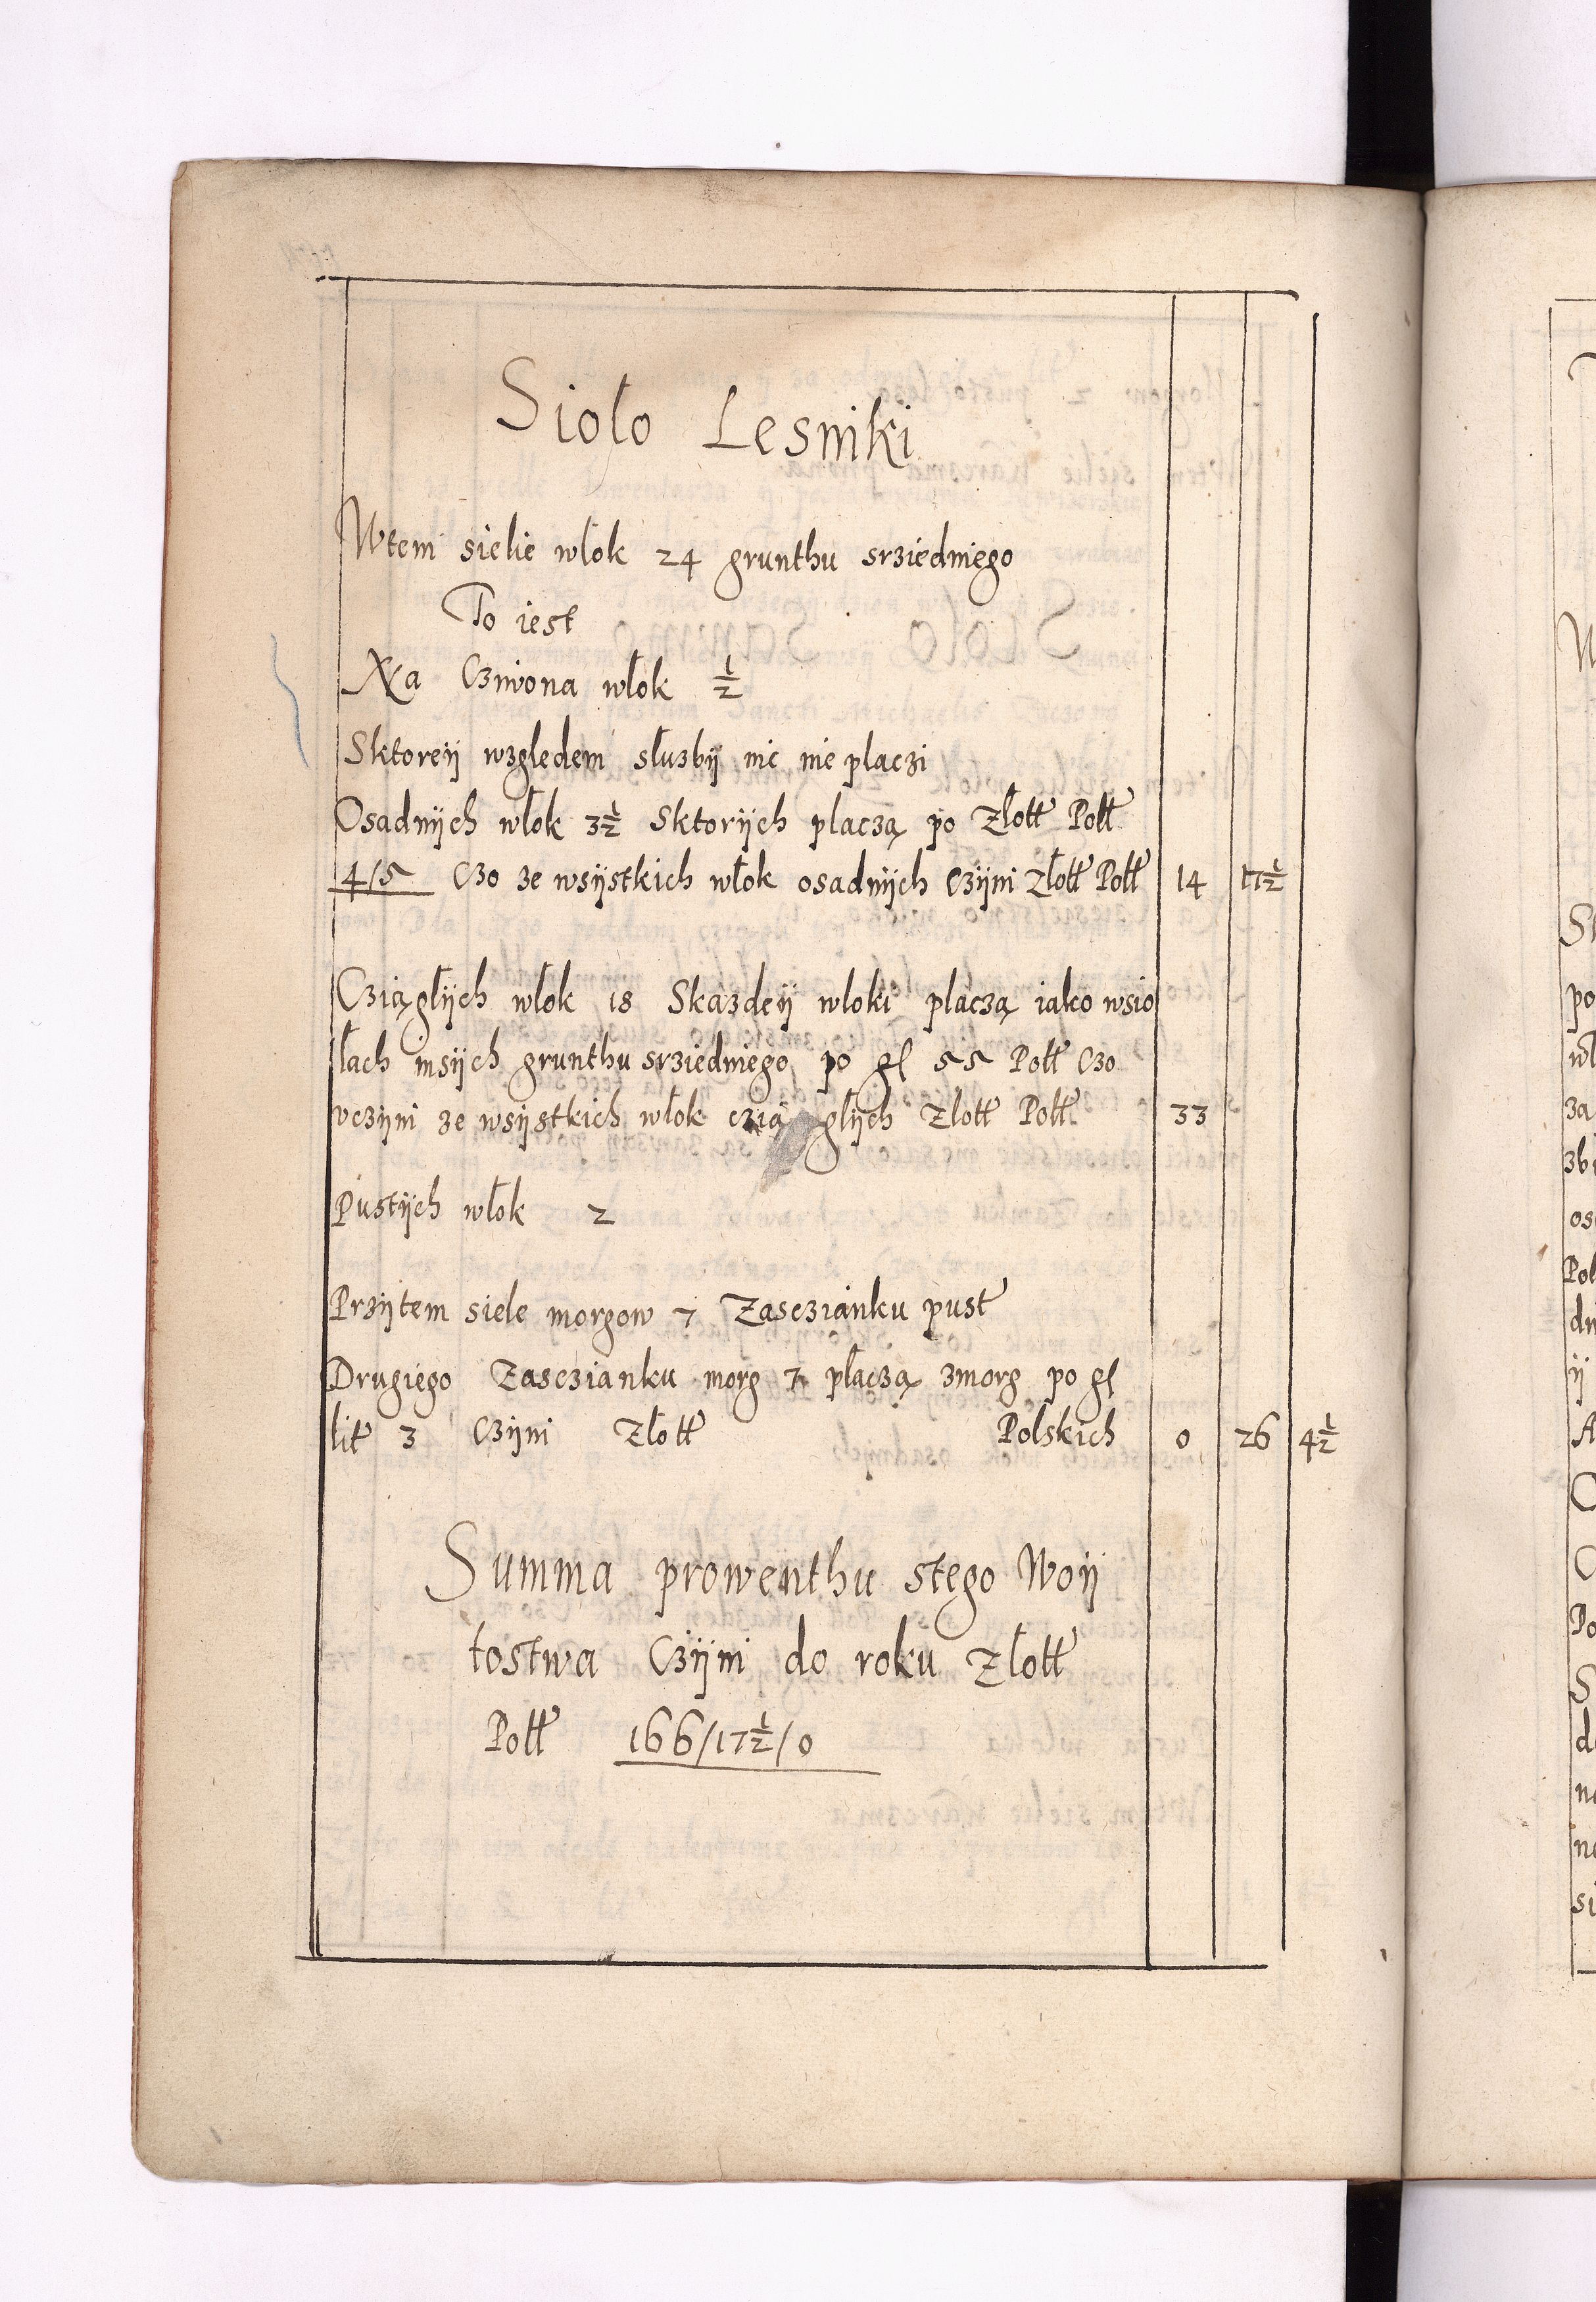 Sioło Lesniki
Wtem sielie włok 24 grunthu srziedniego
To iest
Na Cziwona włok ½
Sktoreij wzgledem słuzbij nic nie płaczi
Osadnijch włok 3½ Sktorijch płaczą po Złott Poll
4/5 Czo ze wsijstkich włok osadnijch Czijni Złott Poll 14 17½
Cziągłijch włok 18 Skazdeij włoki płaczą iako wsio
łach insijch grunthu srziedniego po gł 55 Poll Czo
vczijni ze wsijstkich włok cziągłijch Złott Poll 33
Pustijch włok 2
Przijtem siele morgow 7 Zasczianku pust
Drugiego Zasczianku morg 7 płaczą zmorg po gł
lit 3 Czijni Złott Polskich 0 26 4½
Summa prowenthu stego Woij
tostwa Czijni do roku Złott
Poll 166/17½/0